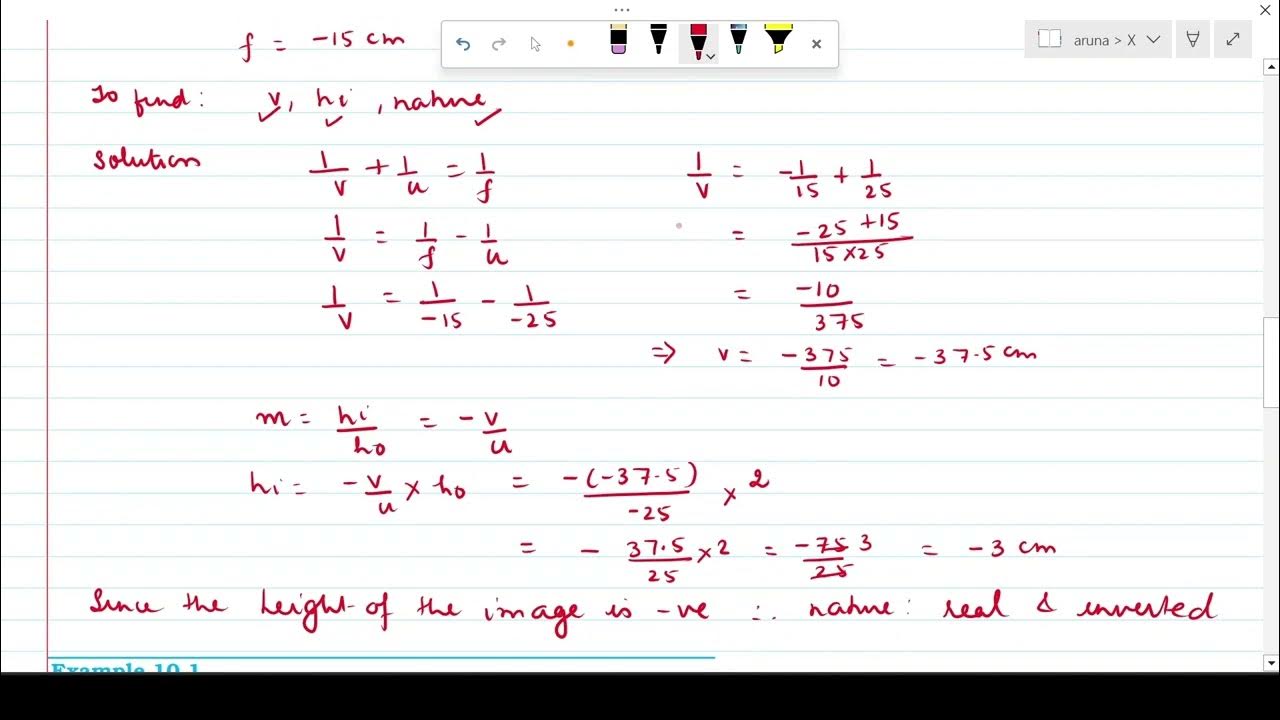 f = -15 cm
aruna > X
To find: v, hi, nature
Solution 1/v + 1/u = 1/f
1/v = 1/f - 1/u
1/v = 1/-15 - 1/-25
1/v = -1/15 + 1/25
= -25 +15/15 x 25
= -10/375
⇒ v = -375/10 = -37.5 cm
m = hi/ho = -v/u
hi = -v/u x ho = -(-37.5)/-25 x 2
= - 37.5/25 x 2 = -75/25 3 = -3 cm
Since the height of the image is -ve ∴ nature: real & inverted
Example 10.1